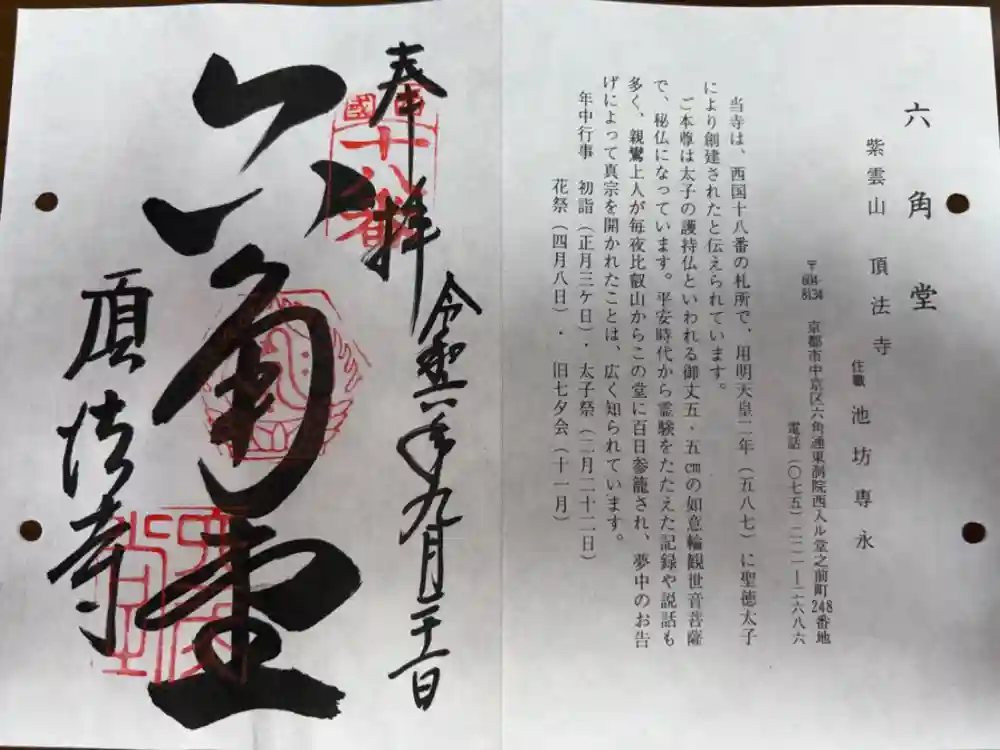 六角堂
紫雲山 頂法寺
住職 池坊専永
〒604-8134 京都市中京区六角通東洞院西入ル堂之前町248番地
電話(〇七五)二二一ー二六八六
当寺は、西国十八番の札所で、用明天皇二年(五八七)に聖徳太子
により創建されたと伝えられています。
ご本尊は太子の護持仏といわれる御丈五・五㎝の如意輪観世音菩薩
で、秘仏になっています。平安時代から霊験をたたえた記録や説話も
多く、親鸞上人が毎夜比叡山からこの堂に百日参籠され、夢中のお告
げによって真宗を開かれたことは、広く知られています。
年中行事 初詣(正月三ケ日)・太子祭(二月二十二日)
花祭(四月八日)・旧七夕会(十一月)
奉拝
西國十八番
令和六年九月二十一日
六角堂
頂法寺